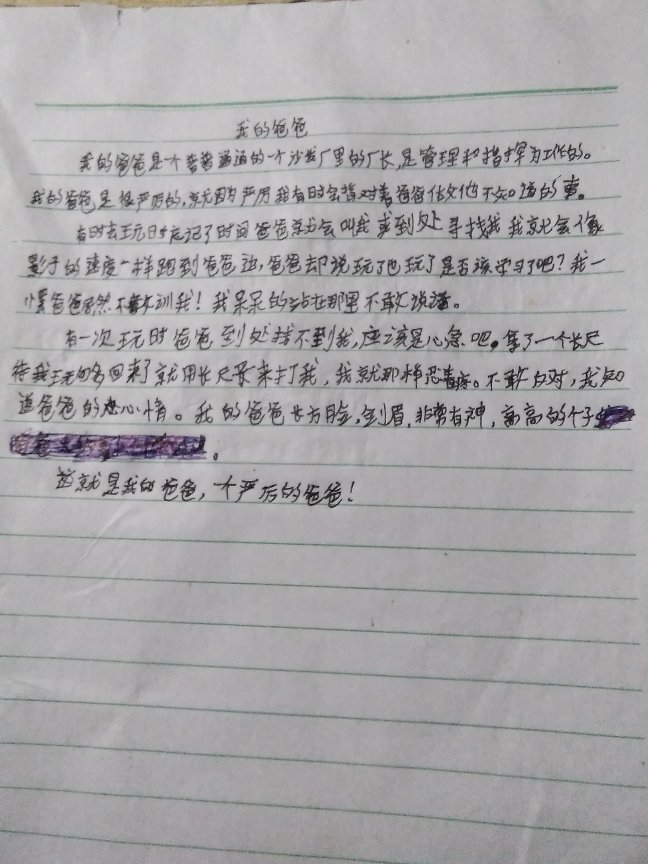 我的爸爸
我的爸爸是一个普普通通的一个沙发厂里的厂长,是管理和指挥为工作的。
我的爸爸是很严厉的,就因为严厉我有时会背对着爸爸做他不知道的事。
有时在玩时忘记了时间爸爸就会叫我或到处寻找我我就会像
影子的速度一样跑到爸爸边,爸爸却说玩了也玩了是否该学习了吧?我一
愣爸爸居然不训我!我呆呆的站在那里不敢说话。
有一次玩时爸爸到处找不到我,应该是心急吧。拿了一个长尺
待我玩够回来了就用长尺来打我,我就那样忍着疼。不敢反对,我知
道爸爸的心情。我的爸爸长方脸,剑眉,非常有神,高高的个子
。
这就是我的爸爸,一个严厉的爸爸!